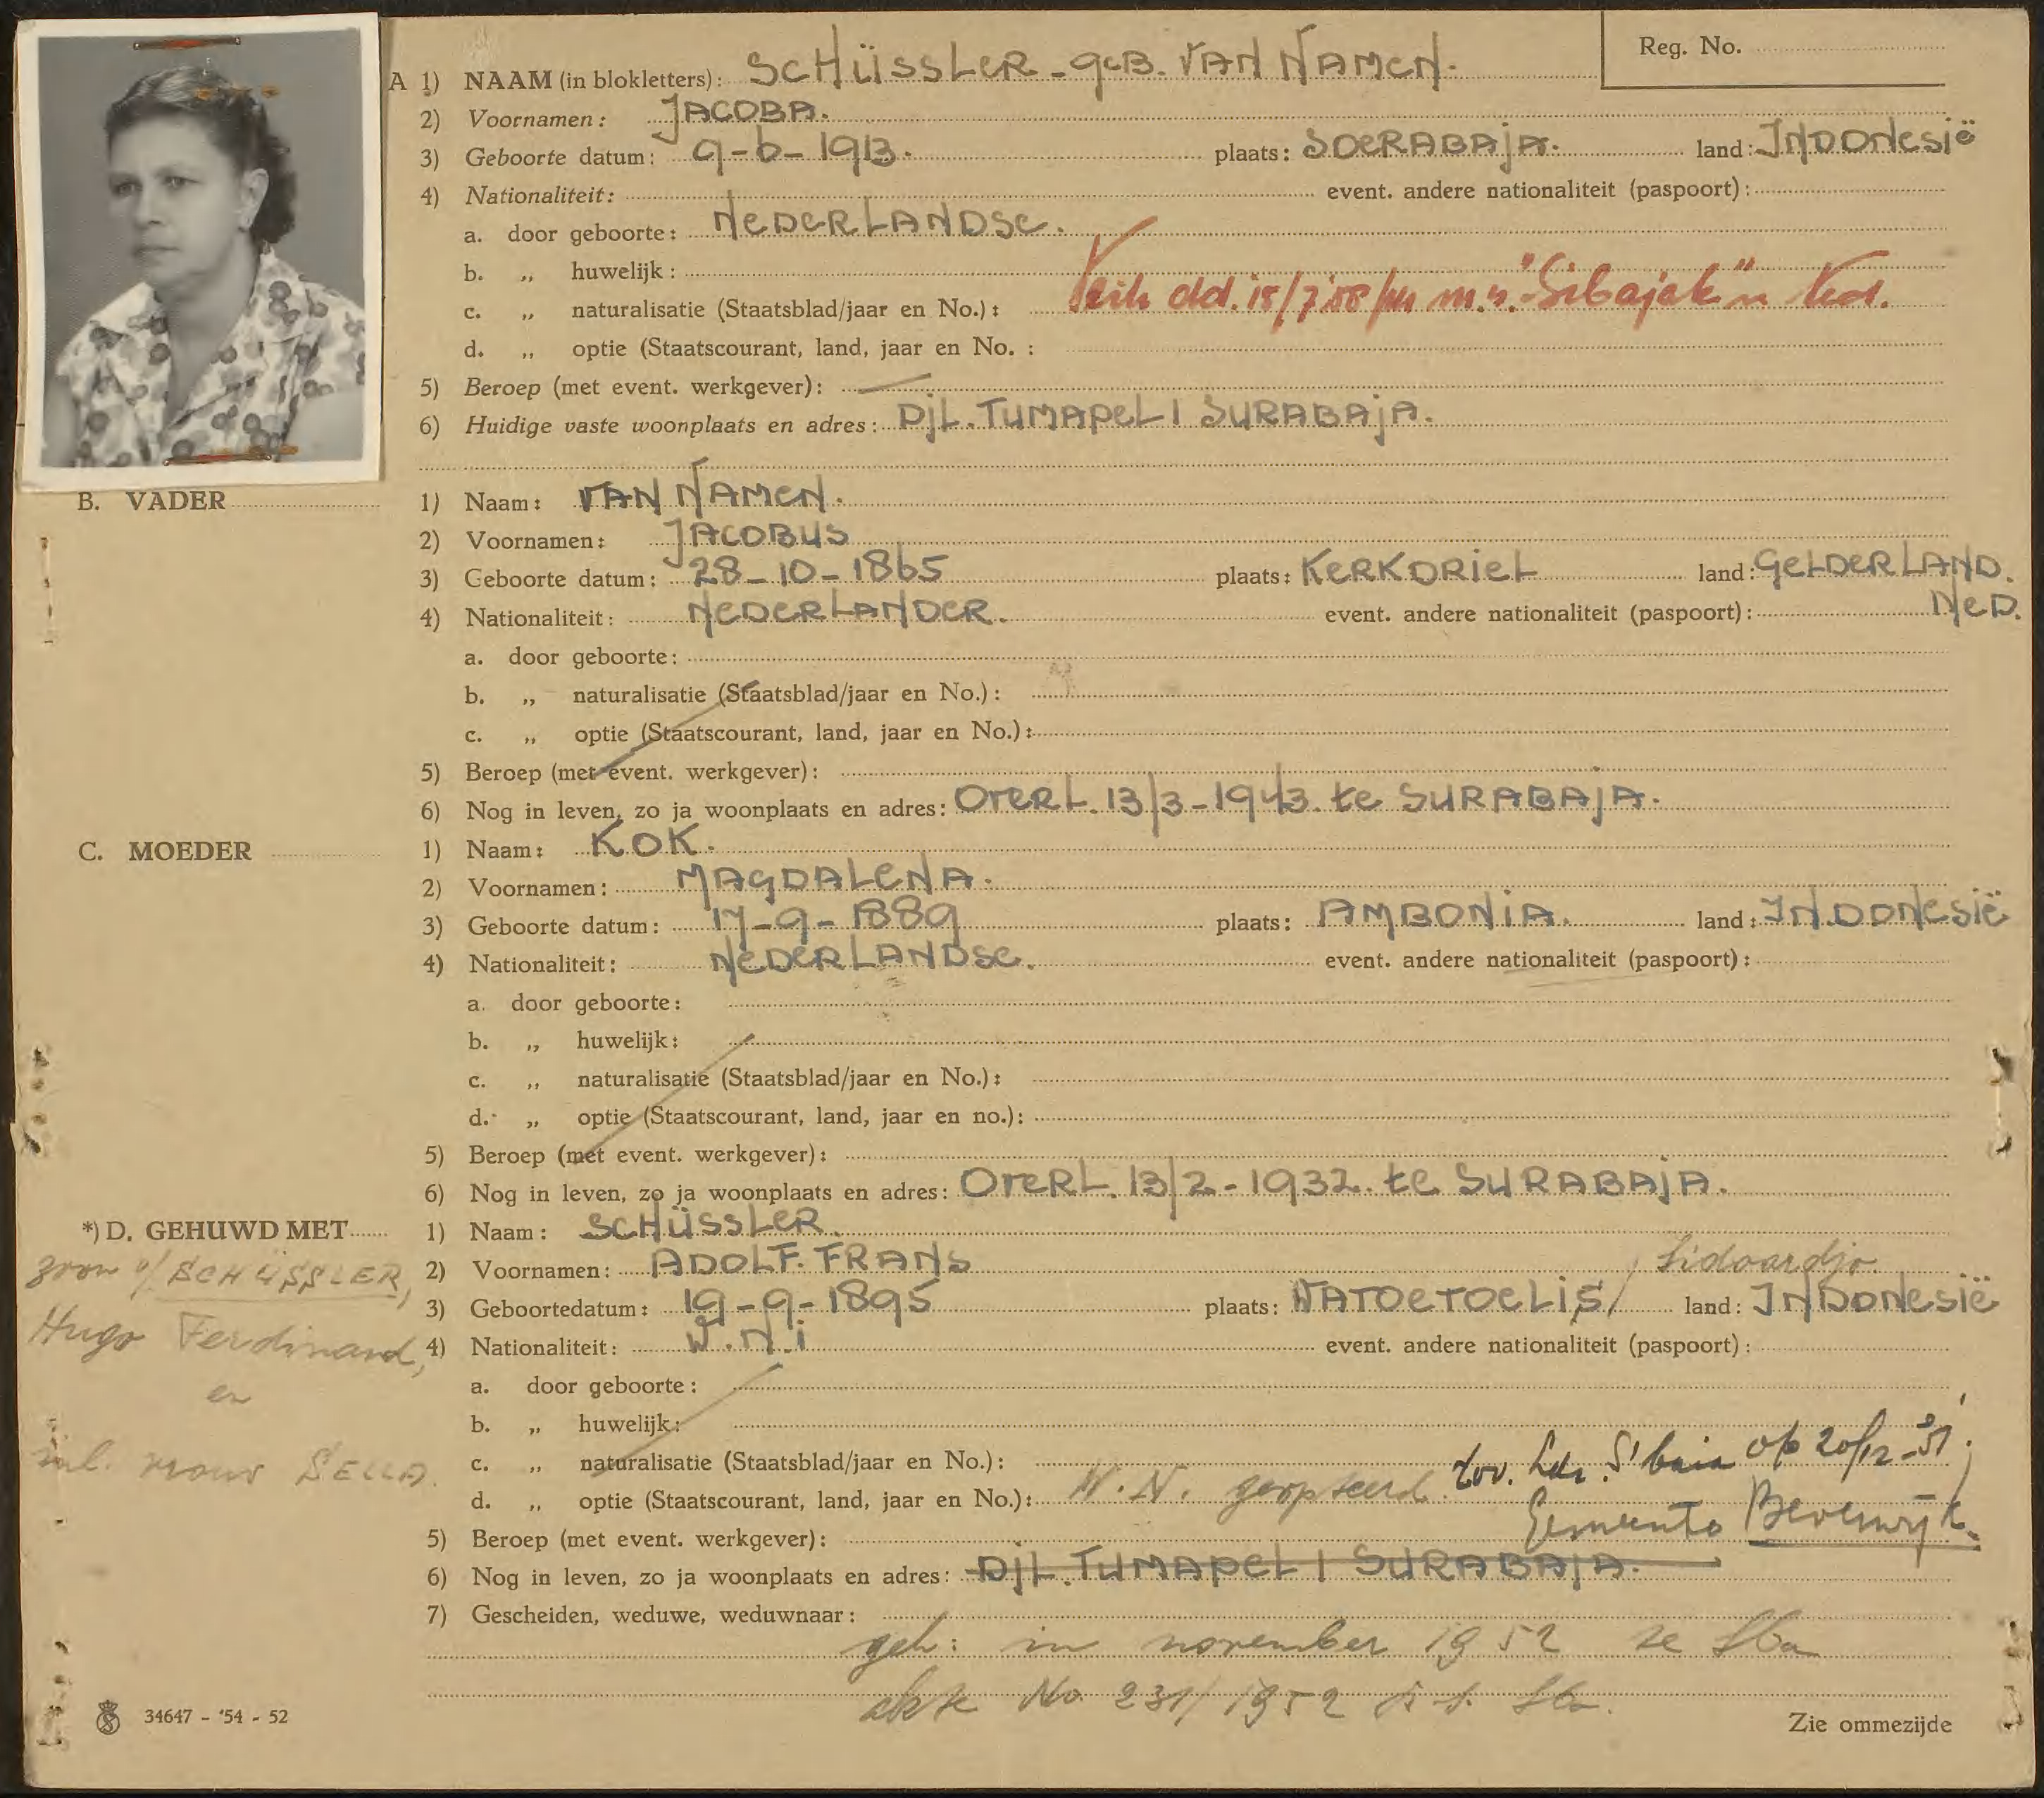 Reg. No.
A 1) NAAM (in blokletters): SCHÜSSLER - geB. VAN NAMEN.
2) Voornamen: JACOBA.
3) Geboorte datum: 9-6-1913. plaats: SOERABAJA. land: INDONESIË
4) Nationaliteit: event. andere nationaliteit (paspoort):
a. door geboorte: NEDERLANDSE.
b. „ huwelijk:
c. „ naturalisatie (Staatsblad/jaar en No.): dd. 15/7'55 m.s. "Sibajak" n
d. „ optie (Staatscourant, land, jaar en No. :
5) Beroep (met event. werkgever):
6) Huidige vaste woonplaats en adres: DJL. TUMAPEL 1 SURABAJA.
B. VADER 1) Naam: VAN NAMEN.
2) Voornamen: JACOBUS
3) Geboorte datum: 28-10-1865 plaats: KERKDRIEL land: GELDERLAND.
4) Nationaliteit: NEDERLANDER. event. andere nationaliteit (paspoort): NED.
a. door geboorte:
b. „ naturalisatie (Staatsblad/jaar en No.):
c. „ optie (Staatscourant, land, jaar en No.):
5) Beroep (met event. werkgever):
6) Nog in leven, zo ja woonplaats en adres: OVERL. 13/3-1943. te SURABAJA.
C. MOEDER 1) Naam: KOK.
2) Voornamen: MAGDALENA.
3) Geboorte datum: 17-9-1889 plaats: AMBONIA. land: INDONESIË
4) Nationaliteit: NEDERLANDSE. event. andere nationaliteit (paspoort):
a. door geboorte:
b. „ huwelijk:
c. „ naturalisatie (Staatsblad/jaar en No.):
d. „ optie (Staatscourant, land, jaar en no.):
5) Beroep (met event. werkgever):
6) Nog in leven, zo ja woonplaats en adres: OVERL. 13/2-1932. te SURABAJA.
*) D. GEHUWD MET 1) Naam: SCHÜSSLER.
zoon v/ SCHÜSSLER,
Hugo Ferdinand,
en
inl. vrouw SELLA.
2) Voornamen: ADOLF. FRANS
3) Geboortedatum: 19-9-1895 plaats: WATOETOELIS / Sidoardjo land: INDONESIË
4) Nationaliteit: W.N.i event. andere nationaliteit (paspoort):
a. door geboorte:
b. „ huwelijk:
c. „ naturalisatie (Staatsblad/jaar en No.):
d. „ optie (Staatscourant, land, jaar en No.): W.N. geopteerd tov. Ldr. S'baia op 20/12-'51;
Gemeente Beverwijk.
5) Beroep (met event. werkgever):
6) Nog in leven, zo ja woonplaats en adres: DJL. TUMAPEL 1 SURABAJA.
7) Gescheiden, weduwe, weduwnaar:
geh: in november 1952 te Sba
akte No 231/1952 Sba.
34647 - '54 - 52
Zie ommezijde